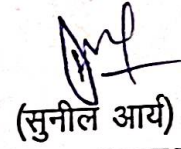 (सुनील आर्य)